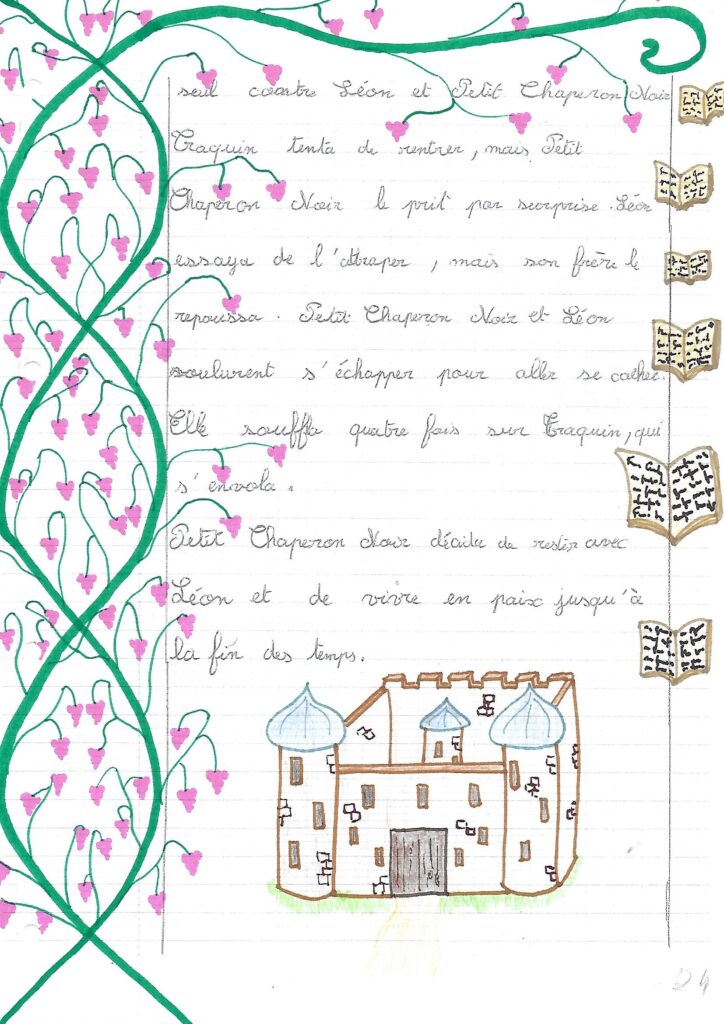 seul contre Léon et Petit Chaperon Noir
Traquin tenta de rentrer, mais Petit
Chaperon Noir le prit par surprise. Léon
essaya de l'attraper, mais son frère le
repoussa. Petit Chaperon Noir et Léon
voulurent s'échapper pour aller se cacher.
Elle souffla quatre fois sur Traquin, qui
s'envola.
Petit Chaperon Noir décida de rester avec
Léon et de vivre en paix jusqu'à
la fin des temps.